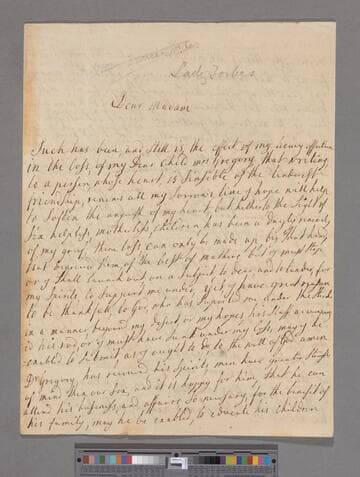 Lady Forbes
Dear Madam
Such has been, and still is, the effect of my heavy affliction
in the loss, of my Dear Child Mrs Gregory, that writing
to a person whose heart, is sensible of the tenderest
friendship, renews all my sorrows time I hope will help
to soften the anguish of my heart, but hitherto the sight of
six helpless motherless children has been a dayly renewal
of my grief, their loss can only be made up by that hand
that bereaved them of the best of mothers but I must stop
or I shall launch out on a subject to dear and tender, for
my Spirits to support me under, yet I have great reason
to be thankfull to God, who has supported me under the stroke
in a manner beyond my desert or my hopes his staff accompany
ed his rod, or I must have sunk under my loss, may I be
enabled to submit as I ought to do to the will of God amen
Dr Gregory has recovered his Spirits, men have greater strength
of mind then our sex, and it is happy for him that he can
attend his business, and affairs So necessary, for the benefit of
his family, may he be enabled, to educate his children